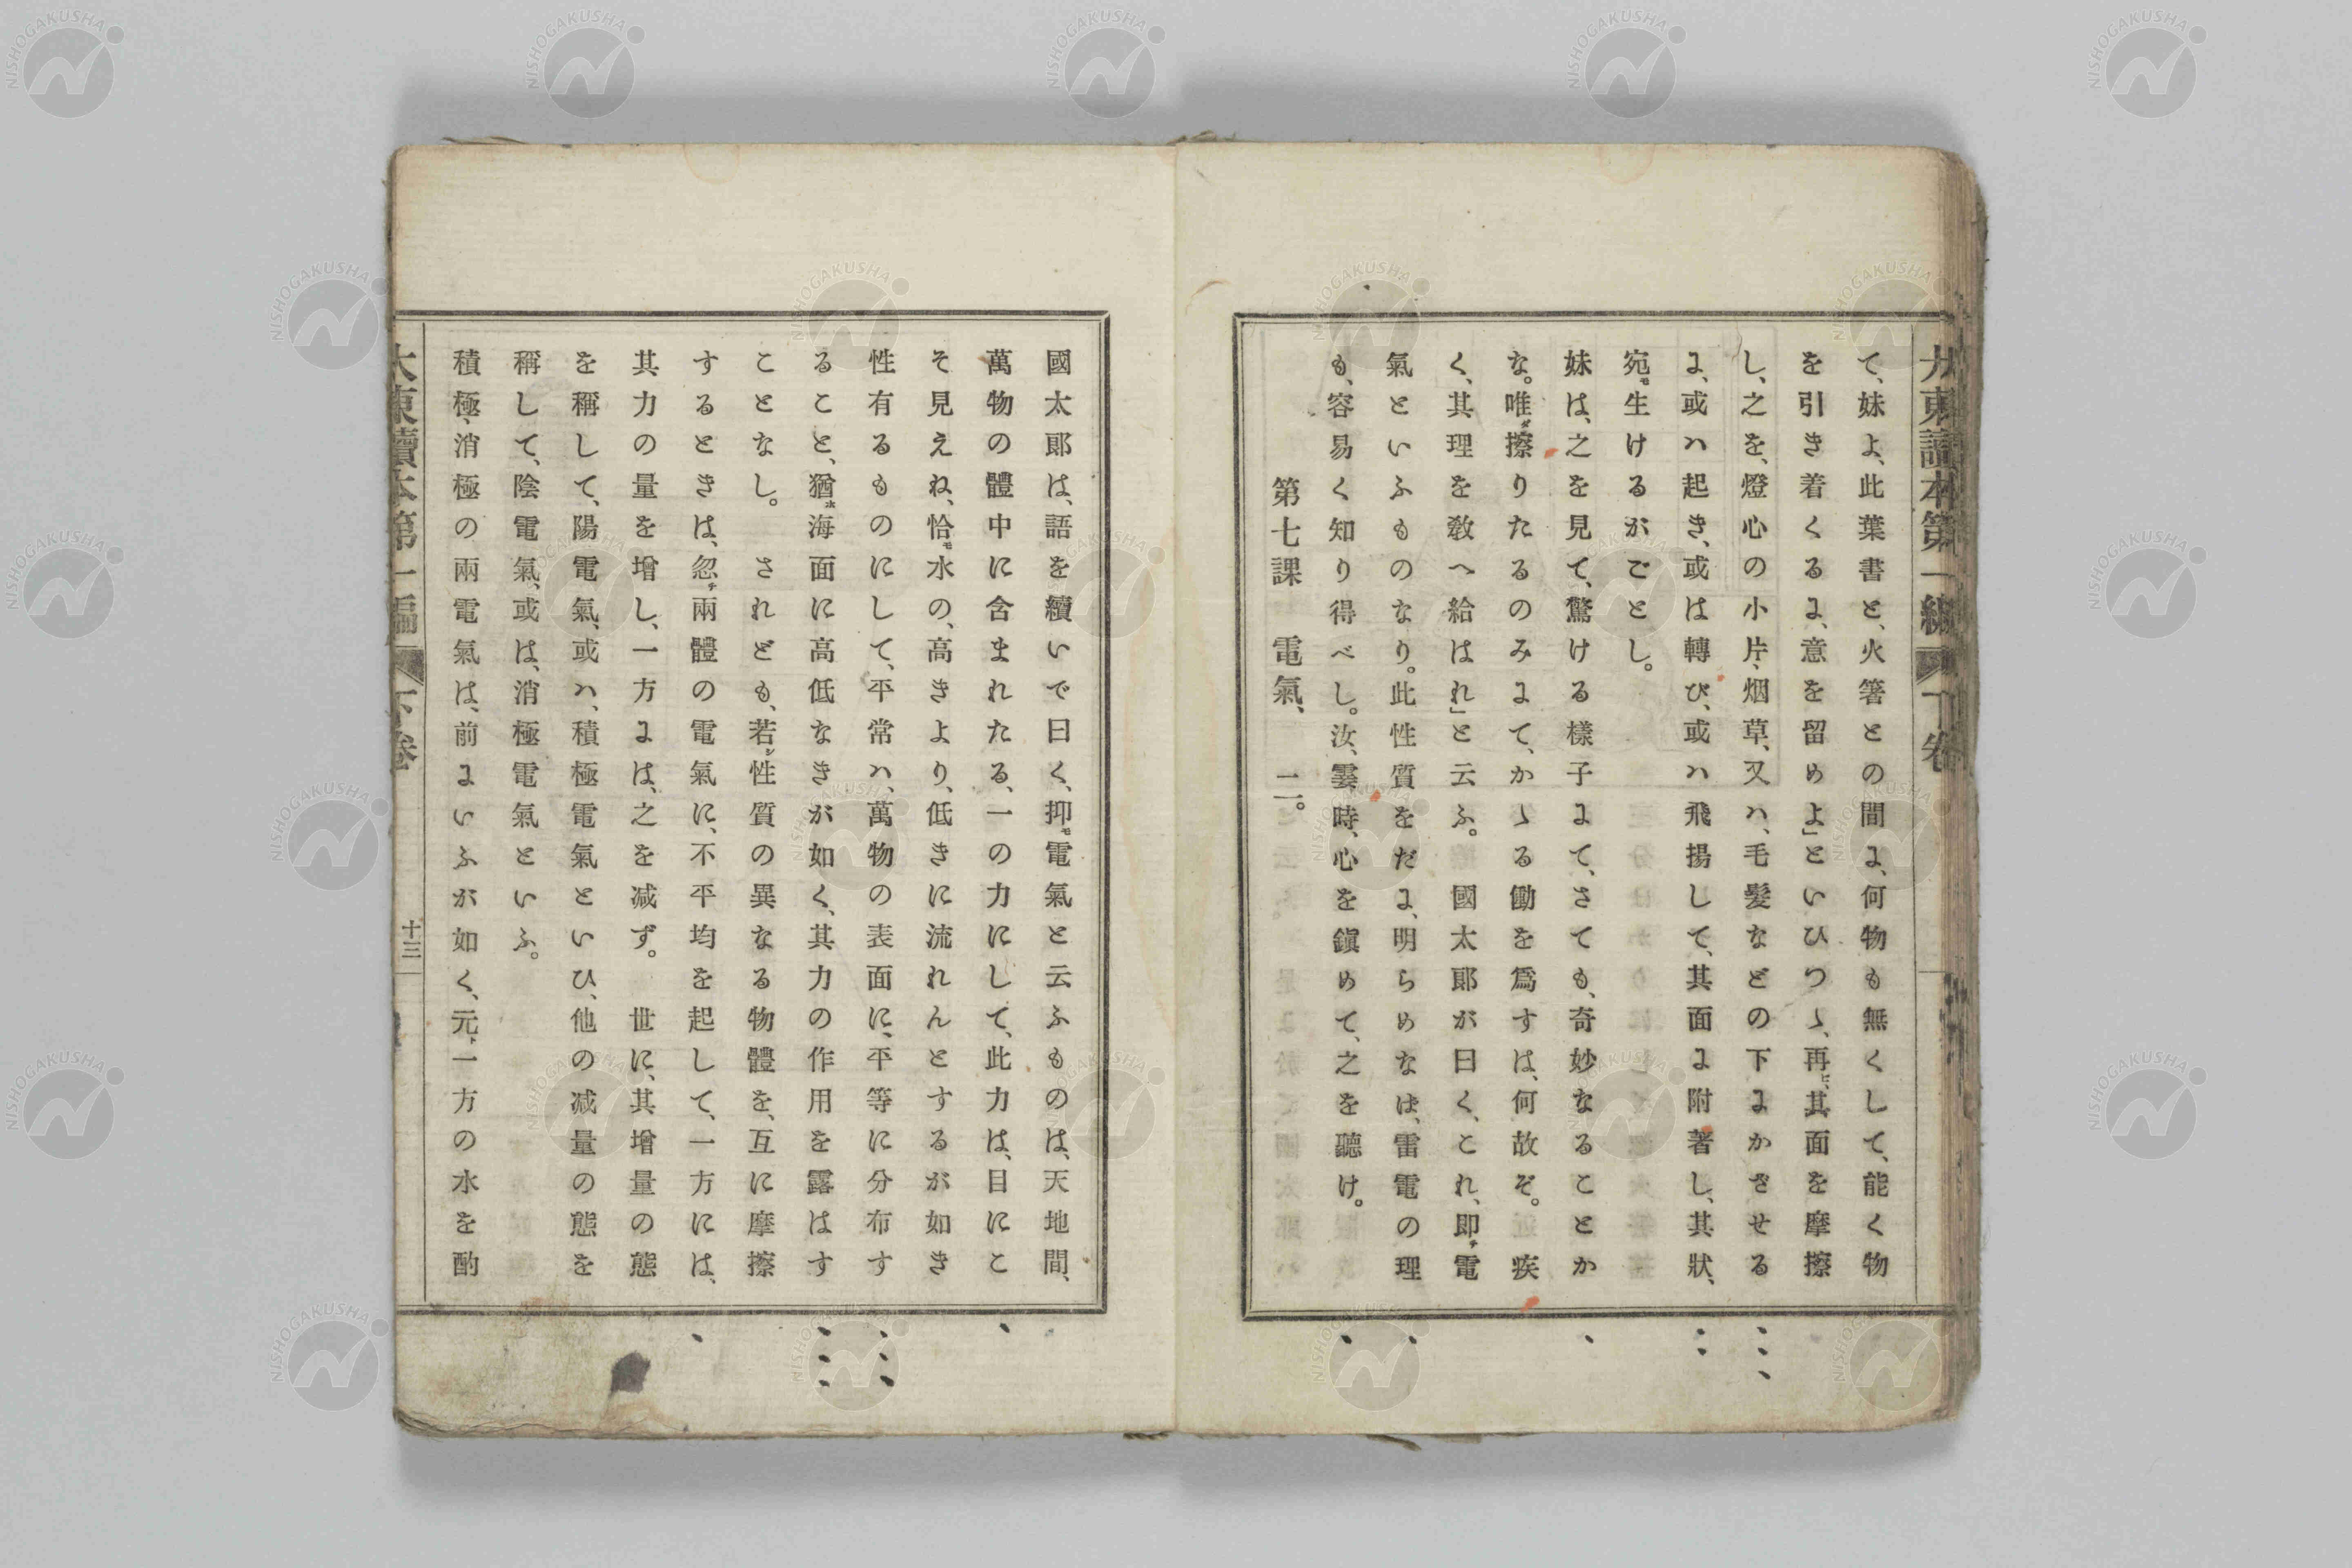 大東讀本第一編 下卷
て、妹よ、此葉書と、火箸との間に、何物も無くして、能く物
を引き着くるに、意を留めよ」といひつゝ、再ビ、其面を摩擦
し、之を、燈心の小片、烟草、又ハ、毛髮などの下にかざせる
に、或ハ起き、或は轉び、或ハ飛揚して、其面に附著し、其狀、
宛モ生けるがごとし。
妹は、之を見て、驚ける樣子にて、さても、奇妙なることか
な。唯ダ擦りたるのみにて、かゝる働を爲すは、何故ぞ。疾
く、其理を敎へ給はれ」と云ふ。國太郞が曰く、これ、即チ電
氣といふものなり。此性質をだに、明らめなば、雷電の理
も、容易く知り得べし。汝、霎時、心を鎭めて、之を聽け。
第七課 電氣、二。
國太郞は、語を續いで曰く、抑モ電氣と云ふものは、天地間、
萬物の體中に含まれたる、一の力にして、此力は、目にこ
そ見えね、恰モ水の、高きより、低きに流れんとするが如き
性有るものにして、平常ハ、萬物の表面に、平等に分布す
ること、猶ホ海面に高低なきが如く、其力の作用を露はす
ことなし。されども、若シ性質の異なる物體を、互に摩擦
するときは、忽チ兩體の電氣に、不平均を起して、一方には、
其力の量を增し、一方には、之を減ず。世に、其增量の態
を稱して、陽電氣、或ハ、積極電氣といひ、他の減量の態を
稱して、陰電氣、或は、消極電氣といふ。
積極、消極の兩電氣は、前にいふが如く、元ト一方の水を酌
大東讀本第一編 下卷 十三
NISHOGAKUSHA